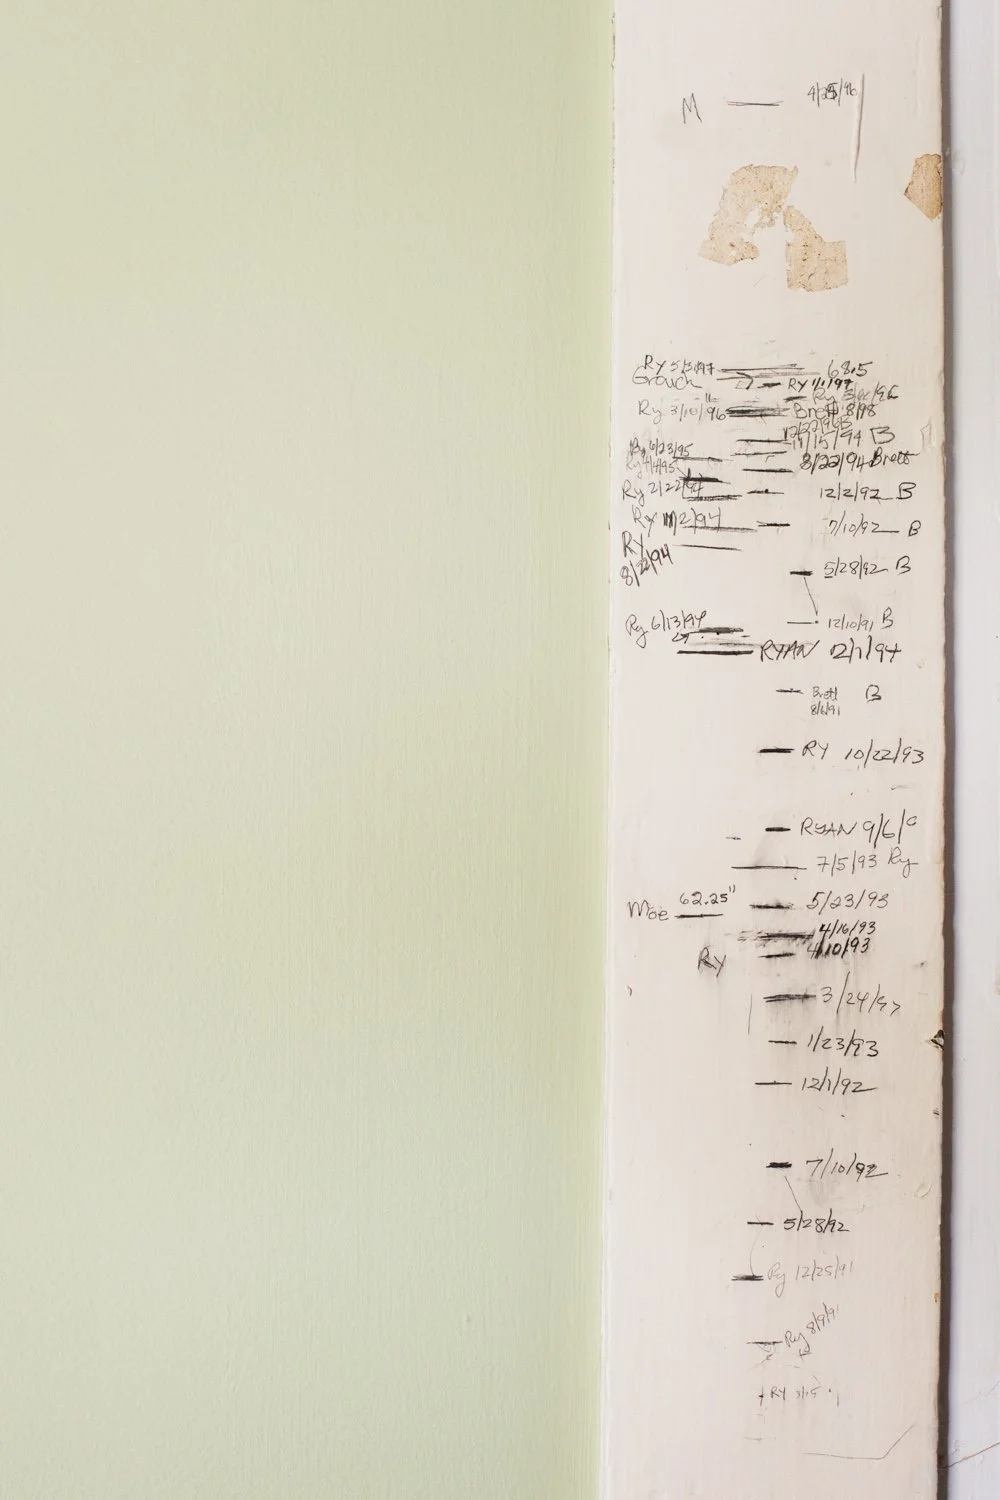 M 4/25/96
Ry 5/5/97 68.5
Grouch RY 1/1/97
Ry
Ry 3/10/96 Brett 8/98
12/22/96 B
11/15/94 B
6/23/95
8/22/94 Brett
Ry 2/22/94 12/2/92 B
Ry 2/94 7/10/92 B
RY
8/22/94
5/28/92 B
Ry 6/13/94 12/10/91 B
RYAN 12/1/94
Brett B
8/6/91
RY 10/22/93
RYAN 9/6/9
7/5/93 Ry
Moe 62.25" 5/23/93
4/16/93
4/10/93
Ry
3/24/93
1/23/93
12/1/92
7/10/92
5/28/92
Ry 12/25/91
Ry 8/9/91
RY